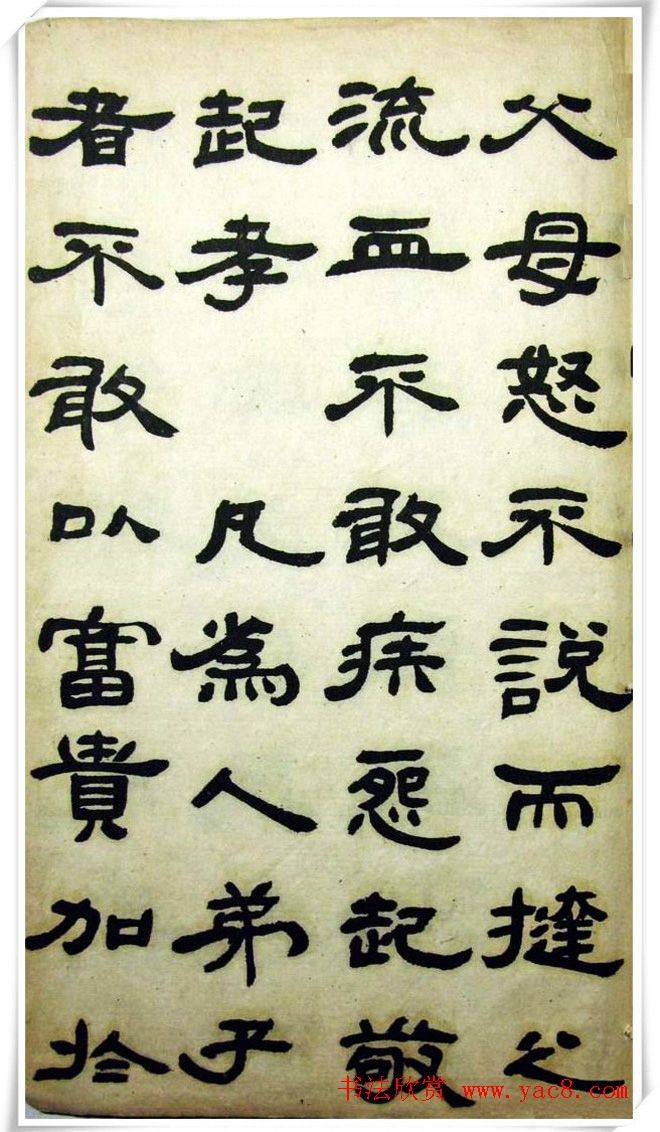 父母怒不說而撻之
流血不敢疾怨起敬
起孝 凡為人弟子
者不敢以富貴加於
书法欣赏 www.yac8.com